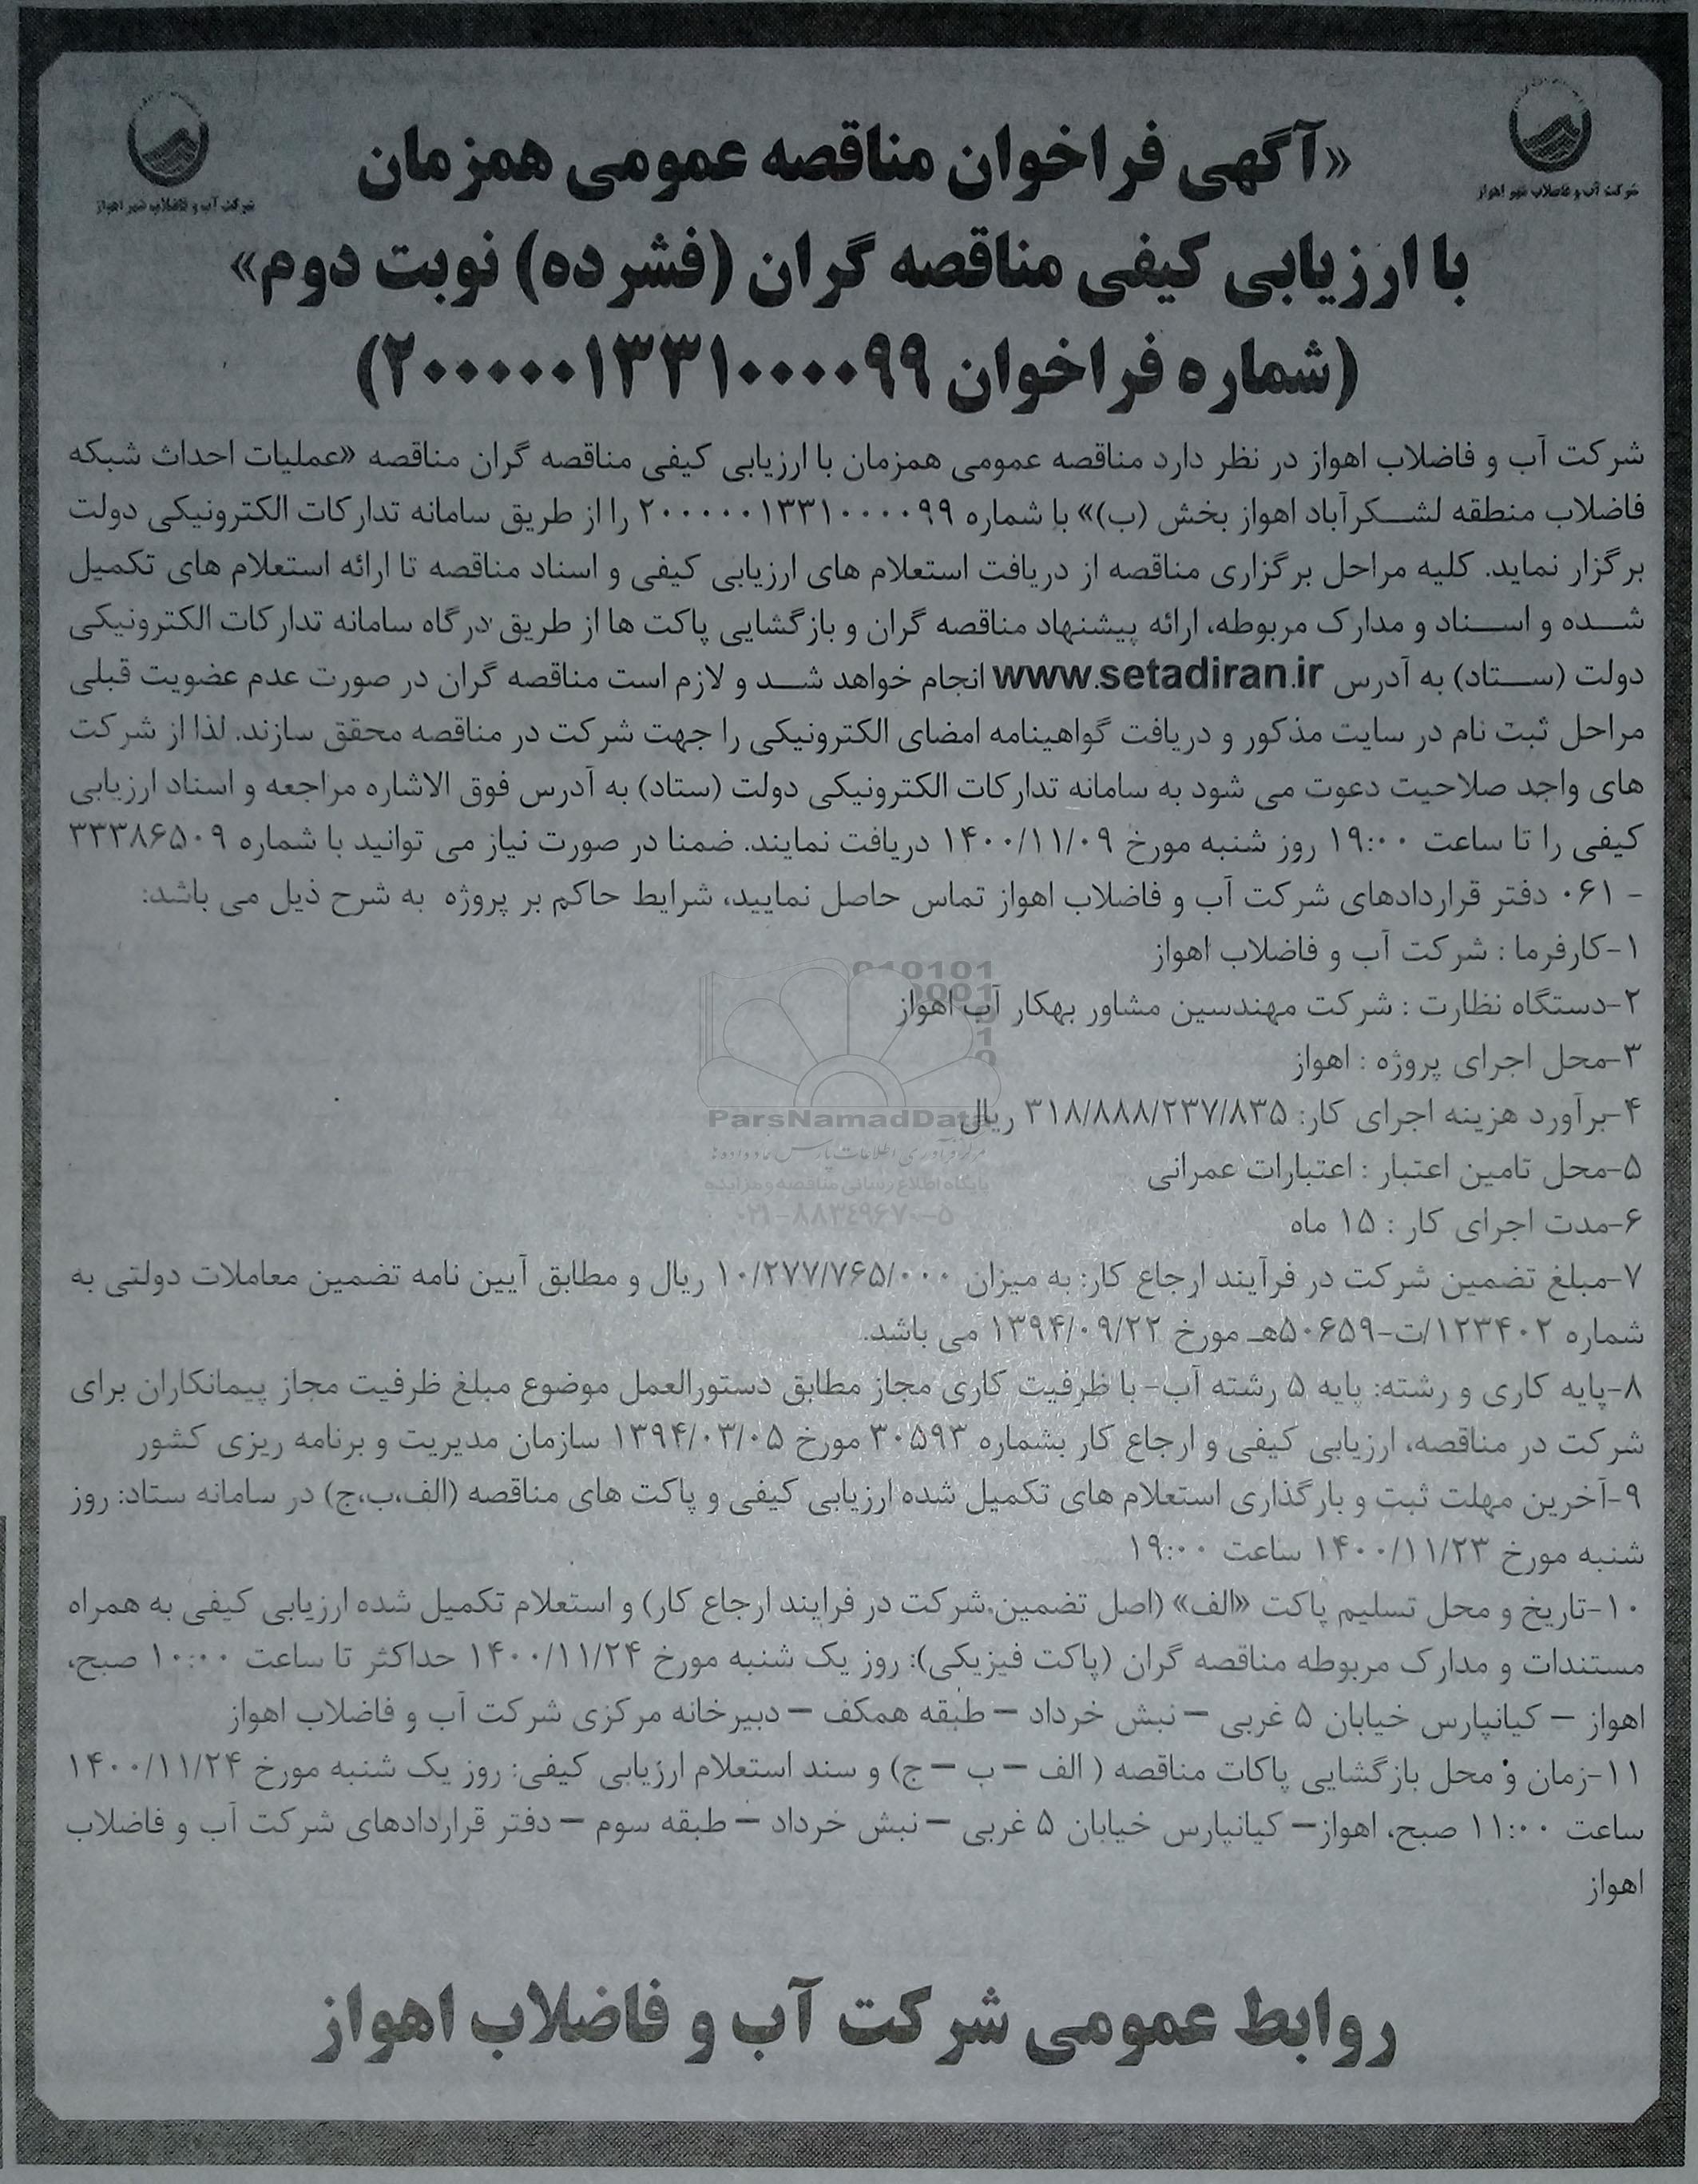 شرکت آب و فاضلاب شهر اهواز
شرکت آب و فاضلاب شهر اهواز
«آگهی فراخوان مناقصه عمومی همزمان
با ارزیابی کیفی مناقصه گران (فشرده) نوبت دوم»
(شماره فراخوان ۲۰۰۰۰۰۱۳۳۱۰۰۰۰۹۹)
شرکت آب و فاضلاب اهواز در نظر دارد مناقصه عمومی همزمان با ارزیابی کیفی مناقصه گران مناقصه «عملیات احداث شبکه
فاضلاب منطقه لشکرآباد اهواز بخش (ب)» با شماره ۲۰۰۰۰۰۱۳۳۱۰۰۰۰۹۹ را از طریق سامانه تدارکات الکترونیکی دولت
برگزار نماید. کلیه مراحل برگزاری مناقصه از دریافت استعلام های ارزیابی کیفی و اسناد مناقصه تا ارائه استعلام های تکمیل
شده و اسناد و مدارک مربوطه، ارائه پیشنهاد مناقصه گران و بازگشایی پاکت ها از طریق درگاه سامانه تدارکات الکترونیکی
دولت (ستاد) به آدرس www.setadiran.ir انجام خواهد شد و لازم است مناقصه گران در صورت عدم عضویت قبلی
مراحل ثبت نام در سایت مذکور و دریافت گواهینامه امضای الکترونیکی را جهت شرکت در مناقصه محقق سازند. لذا از شرکت
های واجد صلاحیت دعوت می شود به سامانه تدارکات الکترونیکی دولت (ستاد) به آدرس فوق الاشاره مراجعه و اسناد ارزیابی
کیفی را تا ساعت ۱۹:۰۰ روز شنبه مورخ ۱۴۰۰/۱۱/۰۹ دریافت نمایند. ضمنا در صورت نیاز می توانید با شماره ۳۳۳۸۶۵۰۹
- ۰۶۱ دفتر قراردادهای شرکت آب و فاضلاب اهواز تماس حاصل نمایید، شرایط حاکم بر پروژه به شرح ذیل می باشد:
۱-کارفرما : شرکت آب و فاضلاب اهواز
۲-دستگاه نظارت : شرکت مهندسین مشاور بهکار آب اهواز
۳-محل اجرای پروژه : اهواز
۴-برآورد هزینه اجرای کار: ۳۱۸/۸۸۸/۲۳۷/۸۳۵ ریال
ParsNamadData
مرکز فرآوری اطلاعات پارس نماد داده ها
۵-محل تامین اعتبار : اعتبارات عمرانی
پایگاه اطلاع رسانی مناقصه و مزایده
۰۲۱-۸۸۳۴۹۶۷۰-۵
۶-مدت اجرای کار : ۱۵ ماه
۷-مبلغ تضمین شرکت در فرآیند ارجاع کار: به میزان ۱۰/۲۷۷/۷۶۵/۰۰۰ ریال و مطابق آیین نامه تضمین معاملات دولتی به
شماره ۱۲۳۴۰۲/ت-۵۰۶۵۹هـ مورخ ۱۳۹۴/۰۹/۲۲ می باشد.
۸-پایه کاری و رشته: پایه ۵ رشته آب- با ظرفیت کاری مجاز مطابق دستورالعمل موضوع مبلغ ظرفیت مجاز پیمانکاران برای
شرکت در مناقصه، ارزیابی کیفی و ارجاع کار بشماره ۳۰۵۹۳ مورخ ۱۳۹۴/۰۳/۰۵ سازمان مدیریت و برنامه ریزی کشور
۹-آخرین مهلت ثبت و بارگذاری استعلام های تکمیل شده ارزیابی کیفی و پاکت های مناقصه (الف،ب،ج) در سامانه ستاد: روز
شنبه مورخ ۱۴۰۰/۱۱/۲۳ ساعت ۱۹:۰۰
۱۰-تاریخ و محل تسلیم پاکت «الف» (اصل تضمین شرکت در فرایند ارجاع کار) و استعلام تکمیل شده ارزیابی کیفی به همراه
مستندات و مدارک مربوطه مناقصه گران (پاکت فیزیکی): روز یک شنبه مورخ ۱۴۰۰/۱۱/۲۴ حداکثر تا ساعت ۱۰:۰۰ صبح،
اهواز – کیانپارس خیابان ۵ غربی – نبش خرداد – طبقه همکف – دبیرخانه مرکزی شرکت آب و فاضلاب اهواز
۱۱-زمان و محل بازگشایی پاکات مناقصه ( الف – ب – ج) و سند استعلام ارزیابی کیفی: روز یک شنبه مورخ ۱۴۰۰/۱۱/۲۴
ساعت ۱۱:۰۰ صبح، اهواز– کیانپارس خیابان ۵ غربی – نبش خرداد – طبقه سوم – دفتر قراردادهای شرکت آب و فاضلاب
اهواز
روابط عمومی شرکت آب و فاضلاب اهواز